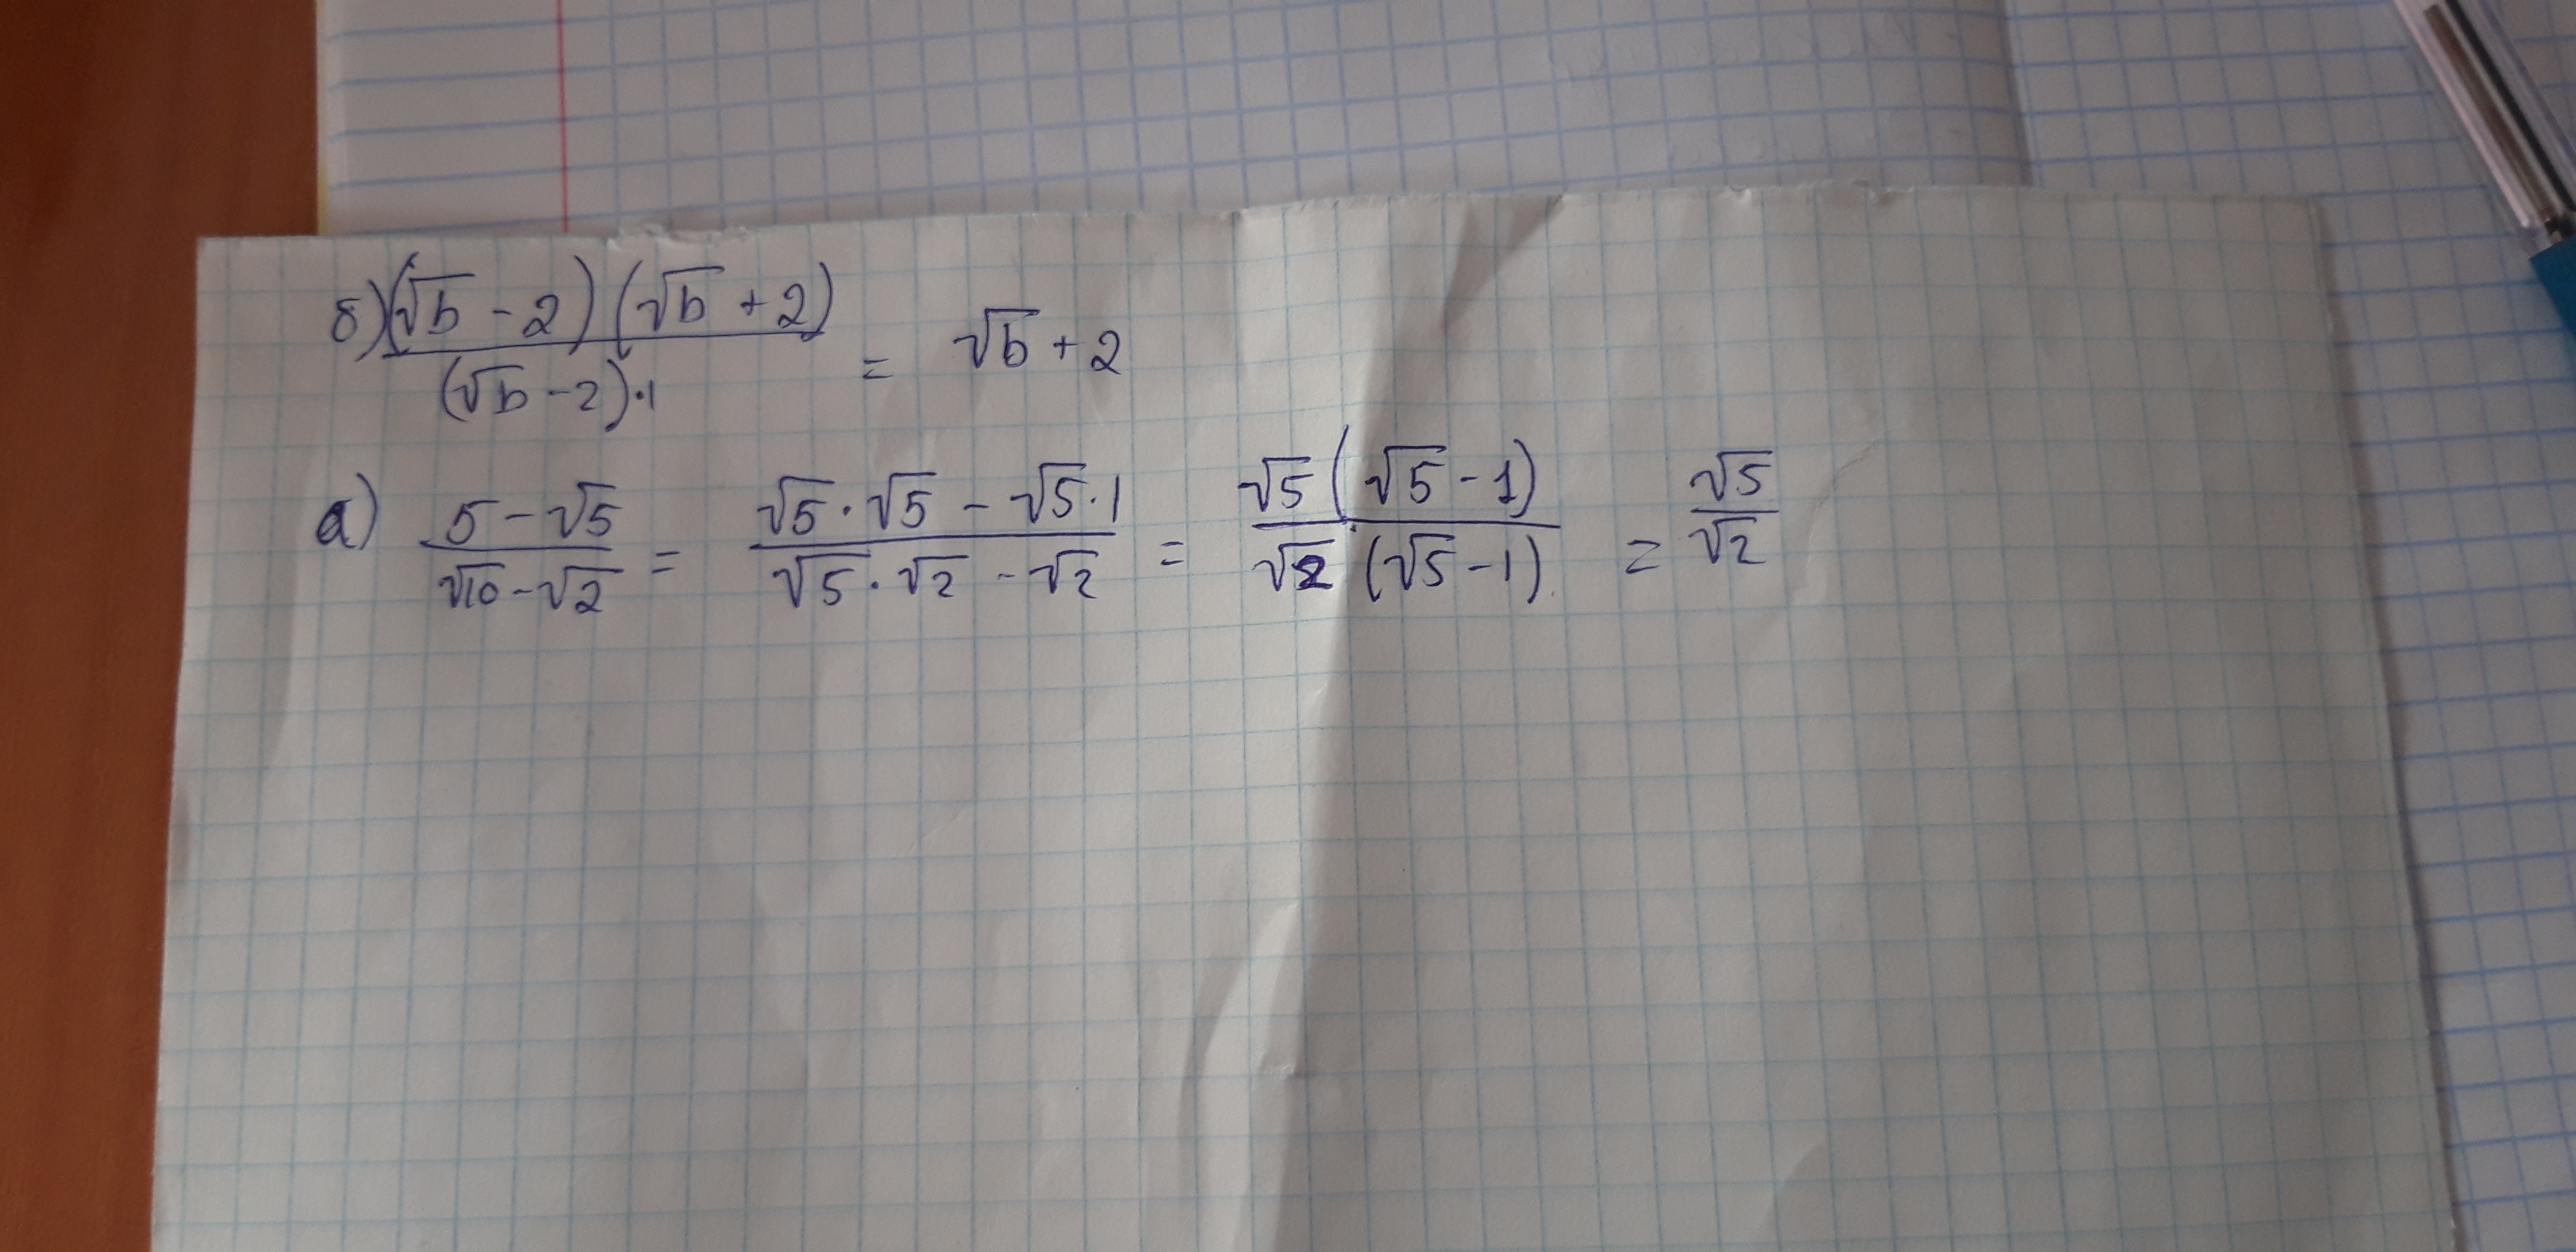 б) ((√b - 2)(√b + 2))/((√b - 2)·1) = √b + 2
а) (5 - √5)/(√10 - √2) = (√5·√5 - √5·1)/(√5·√2 - √2) = (√5(√5 - 1))/(√2(√5 - 1)) = √5/√2